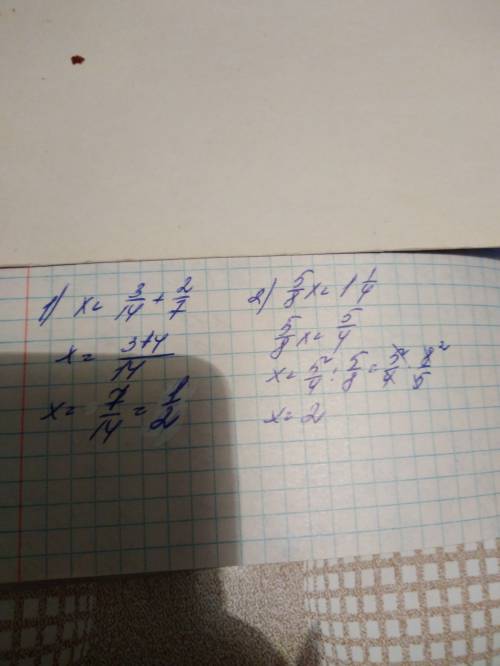 1) x = 3/14 + 2/7
x = 3+4/14
x = 7/14 = 1/2
2) 5/8 x = 1 1/4
5/8 x = 5/4
x = 5/4 : 5/8 = 5/4 · 8/5 2
x = 2